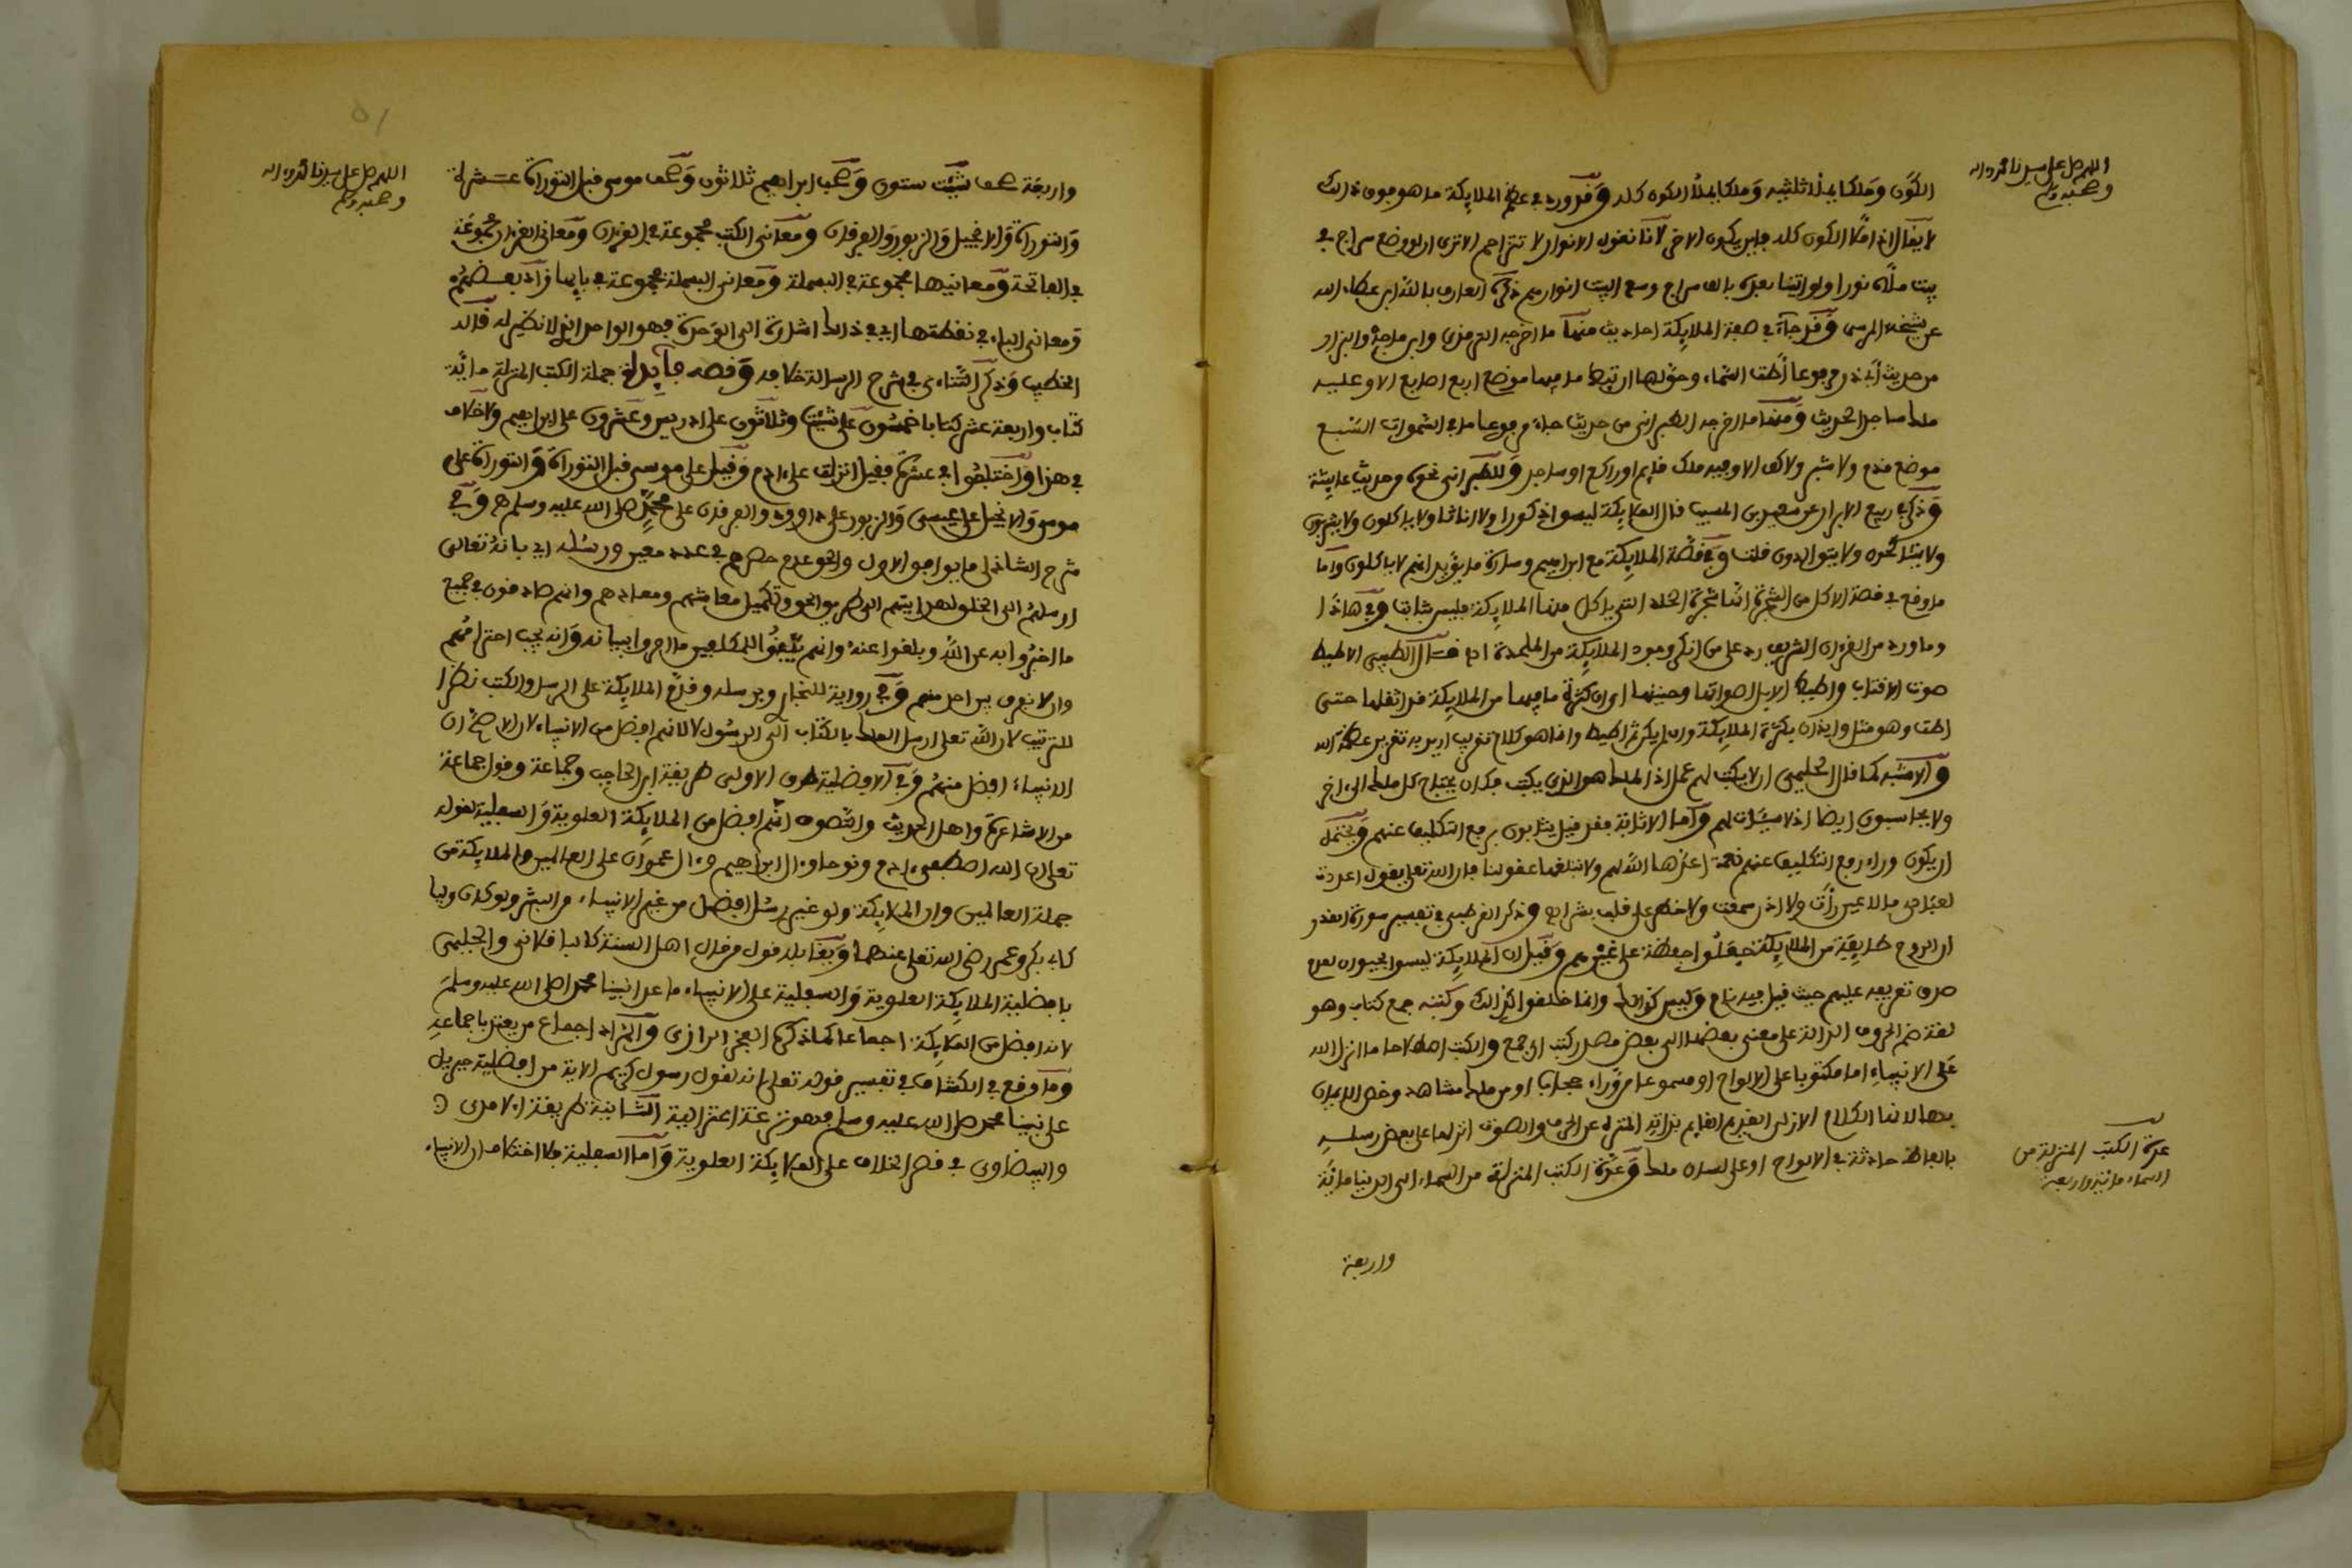 اللهم صل على سيدنا محمد واله
وصحبه وسلم
الكون وملكا يملأ ثلثيه وملكا يملأ الكون كله وقد ورد في عظم الملايكة ما هو فوق ذلك
لا يقال اذا ملا الكون كله فاين يكون الاخر لانا نقول الانوار لا تتزاحم الا ترى ان لو وضع سراج في
بيت ملأه نورا ولو اتينا بعده بالف سراج وسع البيت انوارهم ذكره العارف بالله ابن عطاء الله
عن شيخه المرسى وقد جآء في صفة الملايكة احاديث منها ما اخرجه الترمذي وابن ماجة والبزار
من حديث أبي ذر مرفوعا أطت السماء وحق لها ان تيط ما فيها موضع اربع اصابع الا وعليه
ملك ساجد الحديث ومنها ما اخرجه الطبراني من حديث جابر مرفوعا ما في السموات السبع
موضع قدم ولا شبر ولا كف الا وفيه ملك قايم او راكع او ساجد وللطبراني نحوه من حديث عايشة
وذكر في ربيع الابرار عن سعيد بن المسيب قال الملايكة ليسوا ذكورا ولا اناثا ولا ياكلون ولا يشربون
ولا يتناكحون ولا يتوالدون قلت وفي قصة الملايكة مع ابراهيم وسارة ما يؤيد انهم لا ياكلون واما
ما وقع في قصة الاكل من الشجرة انها شجرة الخلد التي ياكل منها الملايكة فليس بثابت وفي هاذا
وما ورد من القرءان الشريف رد على من انكر وجود الملايكة من الملحدة اه قال الطيبى الاطيط
صوت الاقتاب واطيط الابل اصواتها وحنينها اي ان كثرة ما فيها من الملايكة قد اثقلها حتى
اطت وهو مثل وايذان بكثرة الملايكة وان لم يكن ثم اطيط وانما هو كلام تقريب اريد به تقرير عظمة الله
والاشبه كما قال الحليمى ان لا يكتب لهم عمل اذ الملك هو الذي يكتب فكان يحتاج كل ملك الى اخر
ولا يحاسبون ايضا اذ لا سيئات لهم وأما الاثابة فقد قيل يثابون برفع التكليف عنهم ويحتمل
ان يكون وراء رفع التكليف عنهم نعمة اعدها الله لهم ولا تبلغها عقولنا فان الله تعلى يقول اعددت
لعبادي ما لا عين رأت ولا اذن سمعت ولا خطر على قلب بشر اه وذكر القرطبى في تفسير سورة القدر
ان الروح طايفة من الملايكة جعلوا حفظة على غيرهم وقيل ان الملايكة ليسوا بحيوان لعدم
صدق تعريفه عليهم حيث قيل فيه نام وليس كذلك وانما خلقوا كذلك وكتبه جمع كتاب وهو
لغة ضم الحروف الدالة على معنى بعضها الى بعض مصدر كتب اي جمع والكتب اصطلاحا ما انزل الله
على الانبياء اما مكتوبا على الالواح او مسموعا من وراء حجاب او من ملك مشاهد وخص الايمان
بها لانها الكلام الازلي القديم القايم بذاته المنزه عن الحرف والصوت انزلها على بعض رسله
بالفاظ حادثة في الالواح او على لسان ملك وعدة الكتب المنزلة من السماء الى الدنيا مائة
عدة الكتب المنزلة من
السماء مائة واربعة
واربعة
اللهم صل على سيدنا محمد واله
وصحبه وسلم
واربعة صحف شيت ستون وصحف ابراهيم ثلاثون وصحف موسى قبل التوراة عشرة
والتوراة والانجيل والزبور والفرقان ومعاني الكتب مجموعة في القرءان ومعاني القرءان مجموعة
في الفاتحة ومعانيها مجموعة في البسملة ومعاني البسملة مجموعة في بايها زاد بعضهم
ومعاني الباء في نقطتها اي في ذالك اشارة الى الوحدة فهو الواحد الذي لا نظير له قاله
الخطيب وذكر التتاءى في شرح الرسالة خلافه ونصه فايدة جملة الكتب المنزلة مائة
كتاب واربعة عشر كتابا خمسون على شيت وثلاثون على ادريس وعشرون على ابراهيم ولا خلاف
في هذا واختلفوا في عشرة فقيل انزلت على ءادم وقيل على موسى قبل التوراة والتوراة على
موسى والانجيل على عيسى والزبور على داوود والفرقان على محمد صلى الله عليه وسلم وفي
شرح الشاذلى ما يوافق الاول والحق عدم حصرهم في عدد معين ورسله اي بانه تعالى
ارسلهم الى الخلق لهدايتهم الى طريق الحق وتكميل معاشهم ومعادهم وانهم صادقون في جميع
ما اخبروا به عن الله وبلغوا عنه وانهم بينوا للمكلفين ما امروا ببيانه وانه يجب احترامهم
وان لا نفرق بين احد منهم وفي رواية للبخاري وبرسله وقدم الملايكة على الرسل والكتب نظرا
للترتيب لان الله تعلى ارسل الملك بالكتاب الى الرسول لا لانهم افضل من الانبياء لان الاصح ان
الانبياء افضل منهم وفي الافضلية طرق الاولى طريقة ابن الحاجب وجماعة وقول جماعة
من الاشاعرة واهل الحديث والتصوف انهم افضل من الملايكة العلوية والسفلية لقوله
تعلى ان الله اصطفى ءادم ونوحا وءال ابراهيم وءال عمران على العالمين والملايكة من
جملة العالمين وان الملايكة ولو غير رسل افضل من غير الانبياء من البشر ولو كان وليا
كابي بكر وعمر رضي الله تعلى عنهما ويقابله قول من قال اهل السنة كالباقلاني والحليمى
بافضلية الملايكة العلوية والسفلية على الانبياء ما عدا نبينا محمدا صلى الله عليه وسلم
لانه افضل من الملايكة اجماعا كما ذكره الفخر الرازي والمراد اجماع من يعتد باجماعه
وما وقع في الكشاف في تفسير قوله تعلى انه لقول رسول كريم الاية من افضلية جبريل
على نبينا محمد صلى الله عليه وسلم فهو نزعة اعتزالية الثانية طريقة الامدى
والبيضاوى في قصر الخلاف على الملايكة العلوية واما السفلية فلا اختلاف ان الانبياء